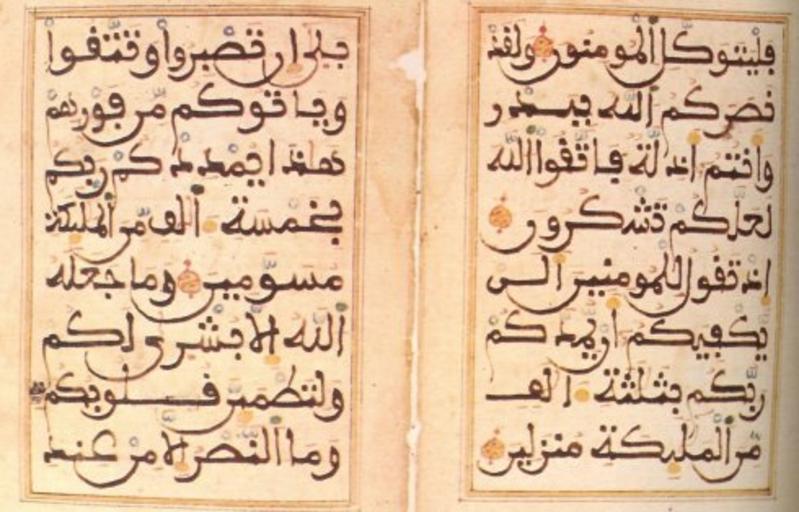 فليتوكل المومنون ولقد
نصركم الله ببدر
وانتم اذلة فاتقوا الله
لعلكم تشكرون
اذ تقول للمومنين الن
يكفيكم ان يمدكم
ربكم بثلثة الف
من الملئكة منزلين
بلى ان تصبروا وتتقوا
وياتوكم من فورهم
هذا يمددكم ربكم
بخمسة الف من الملئكة
مسومين وما جعله
الله الا بشرى لكم
ولتطمئن قلوبكم به
وما النصر الا من عند